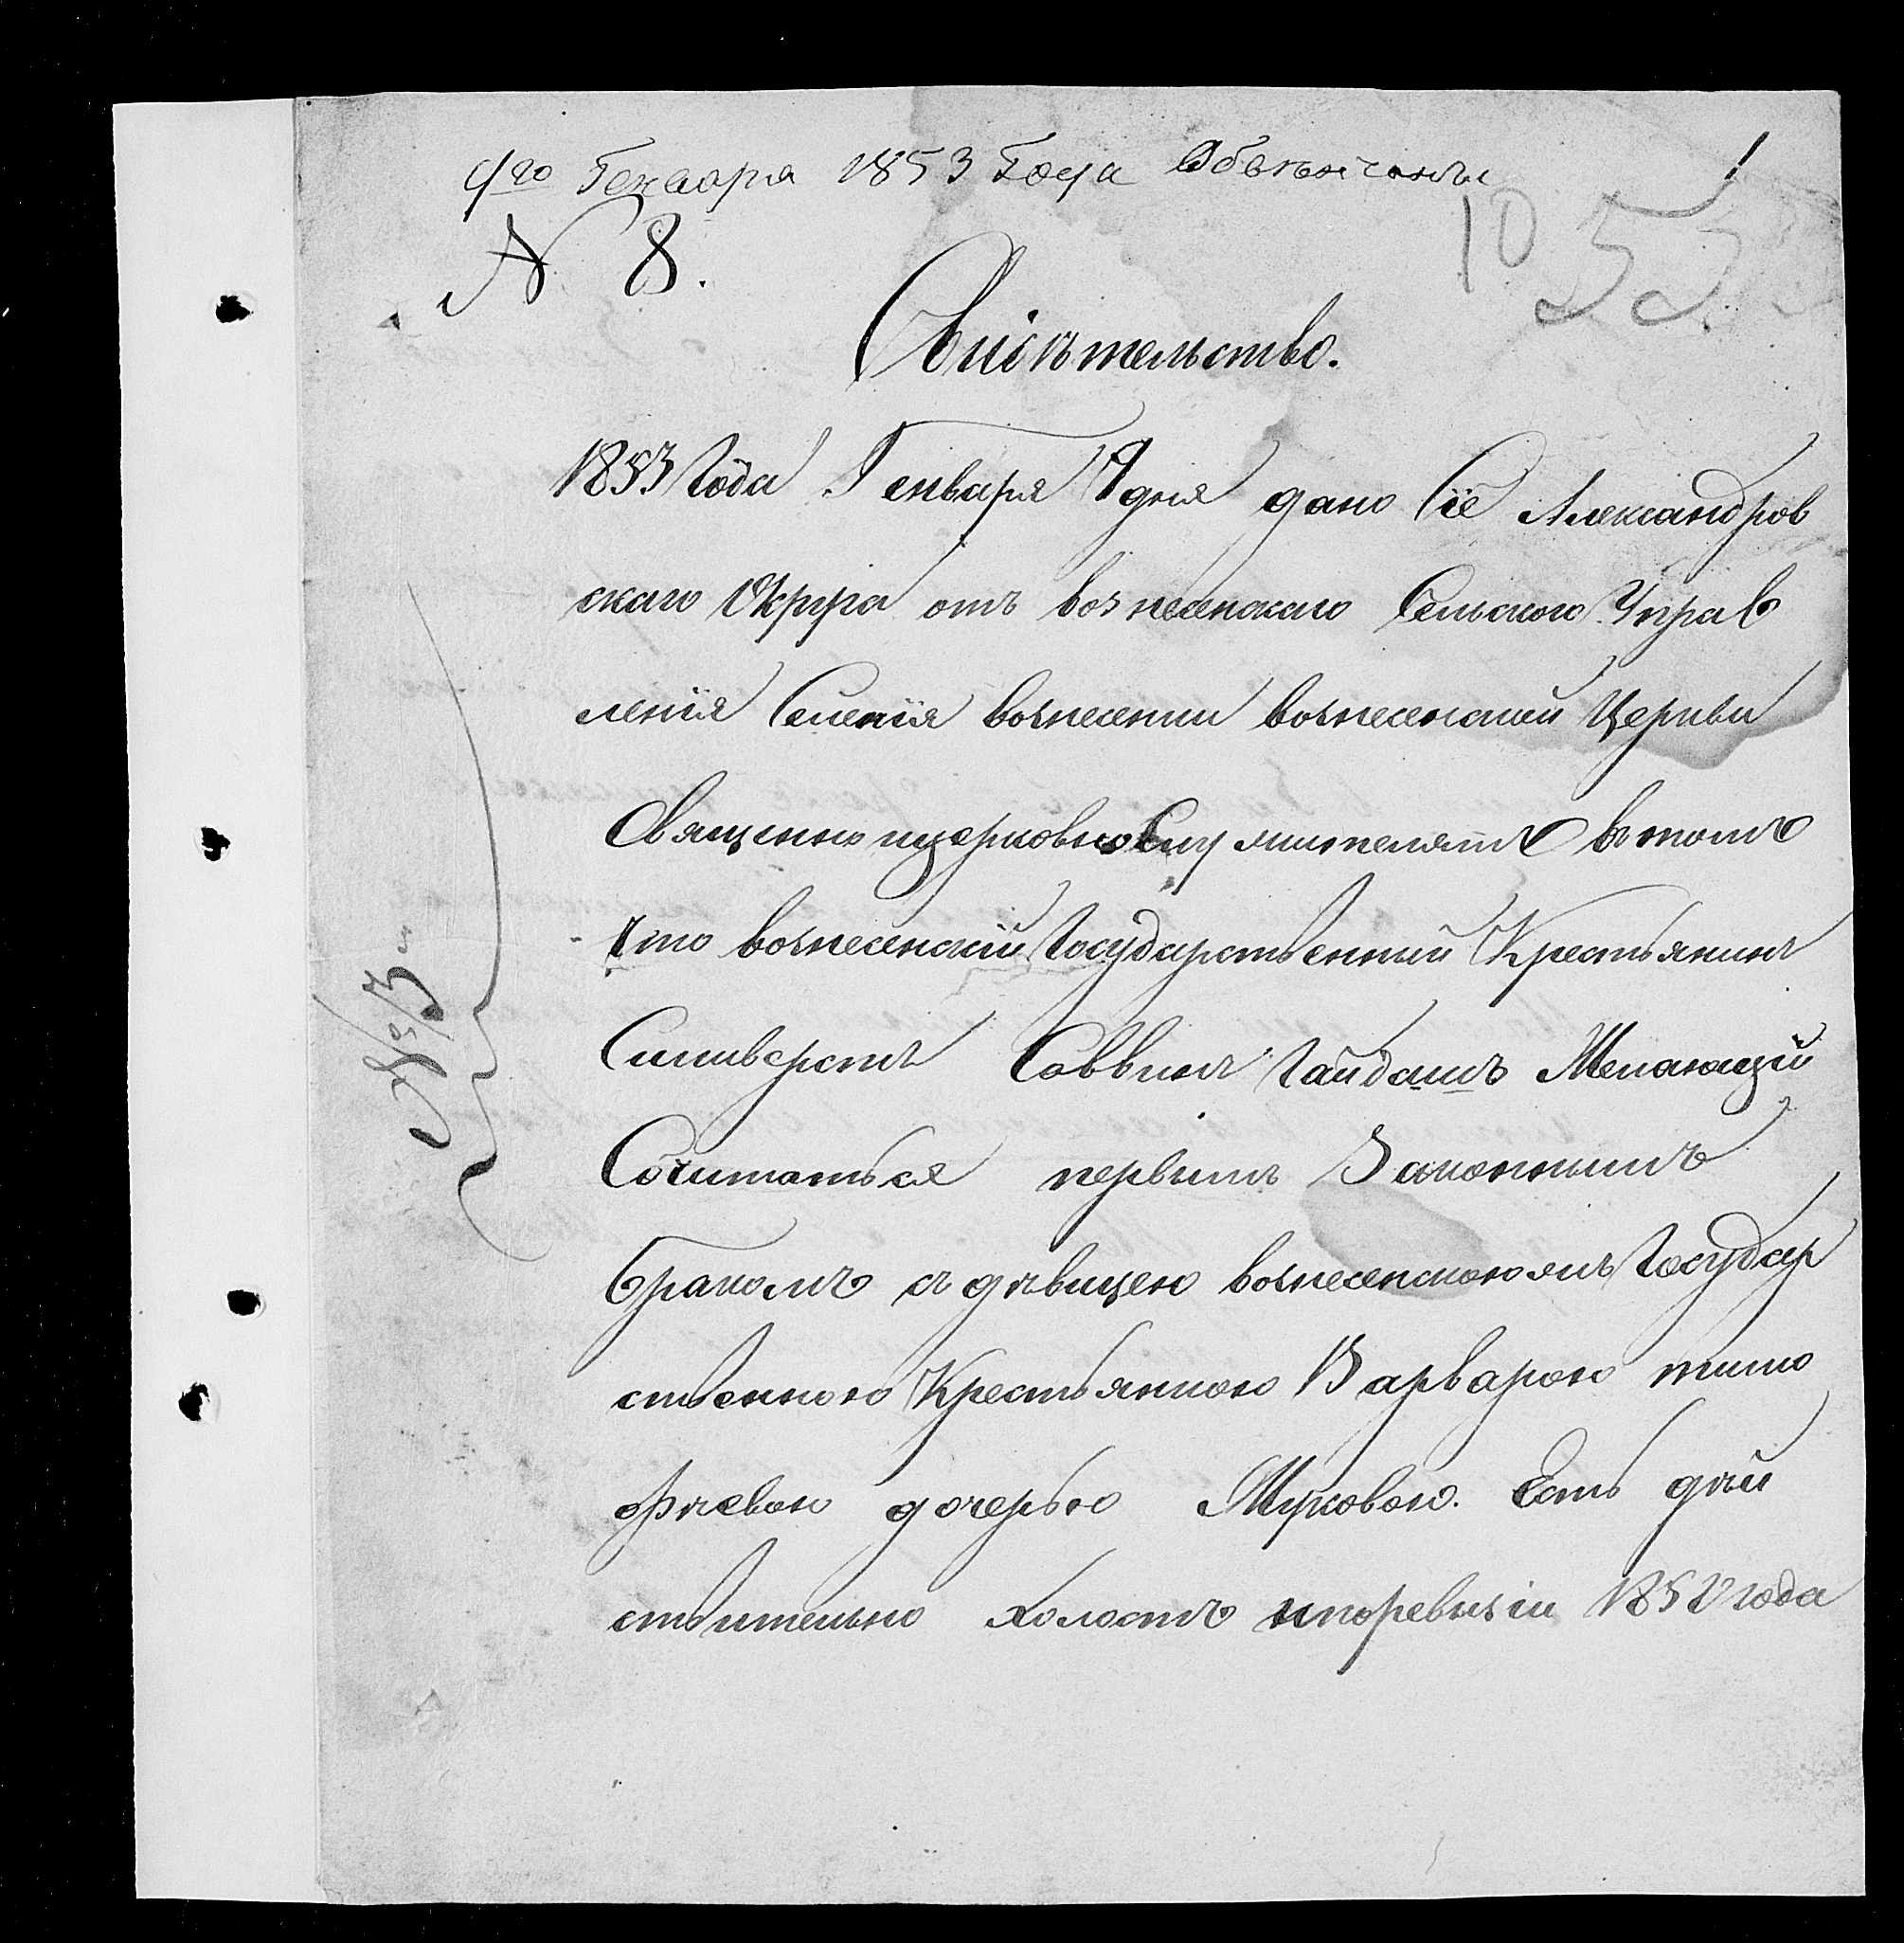 9го Генваря 1853 Года Обвенчаны
1
№ 8.
10
55
Свидѣтельство.
1853 Года Генваря 9 дня дано Сіе Александров
скаго Округа отъ вознесенскаго Сельскаго Управ
ленія Селенія вознесенки вознесенской Церкви
Священно ицерковно Служителямъ втомъ
что вознесенскій Государственный Крестьянинъ
Силиверстъ Саввинъ Гайдашъ Желающій
Сочитаться первымъ Законнымъ
бракомъ съ дѣвицею вознесенскою жъ Государ
ственною Крестьянкою Варварою тимо
фѣевою дочерью Жуковою. Есть дѣй
ствительно холостъ ипоревизіи 1850 года